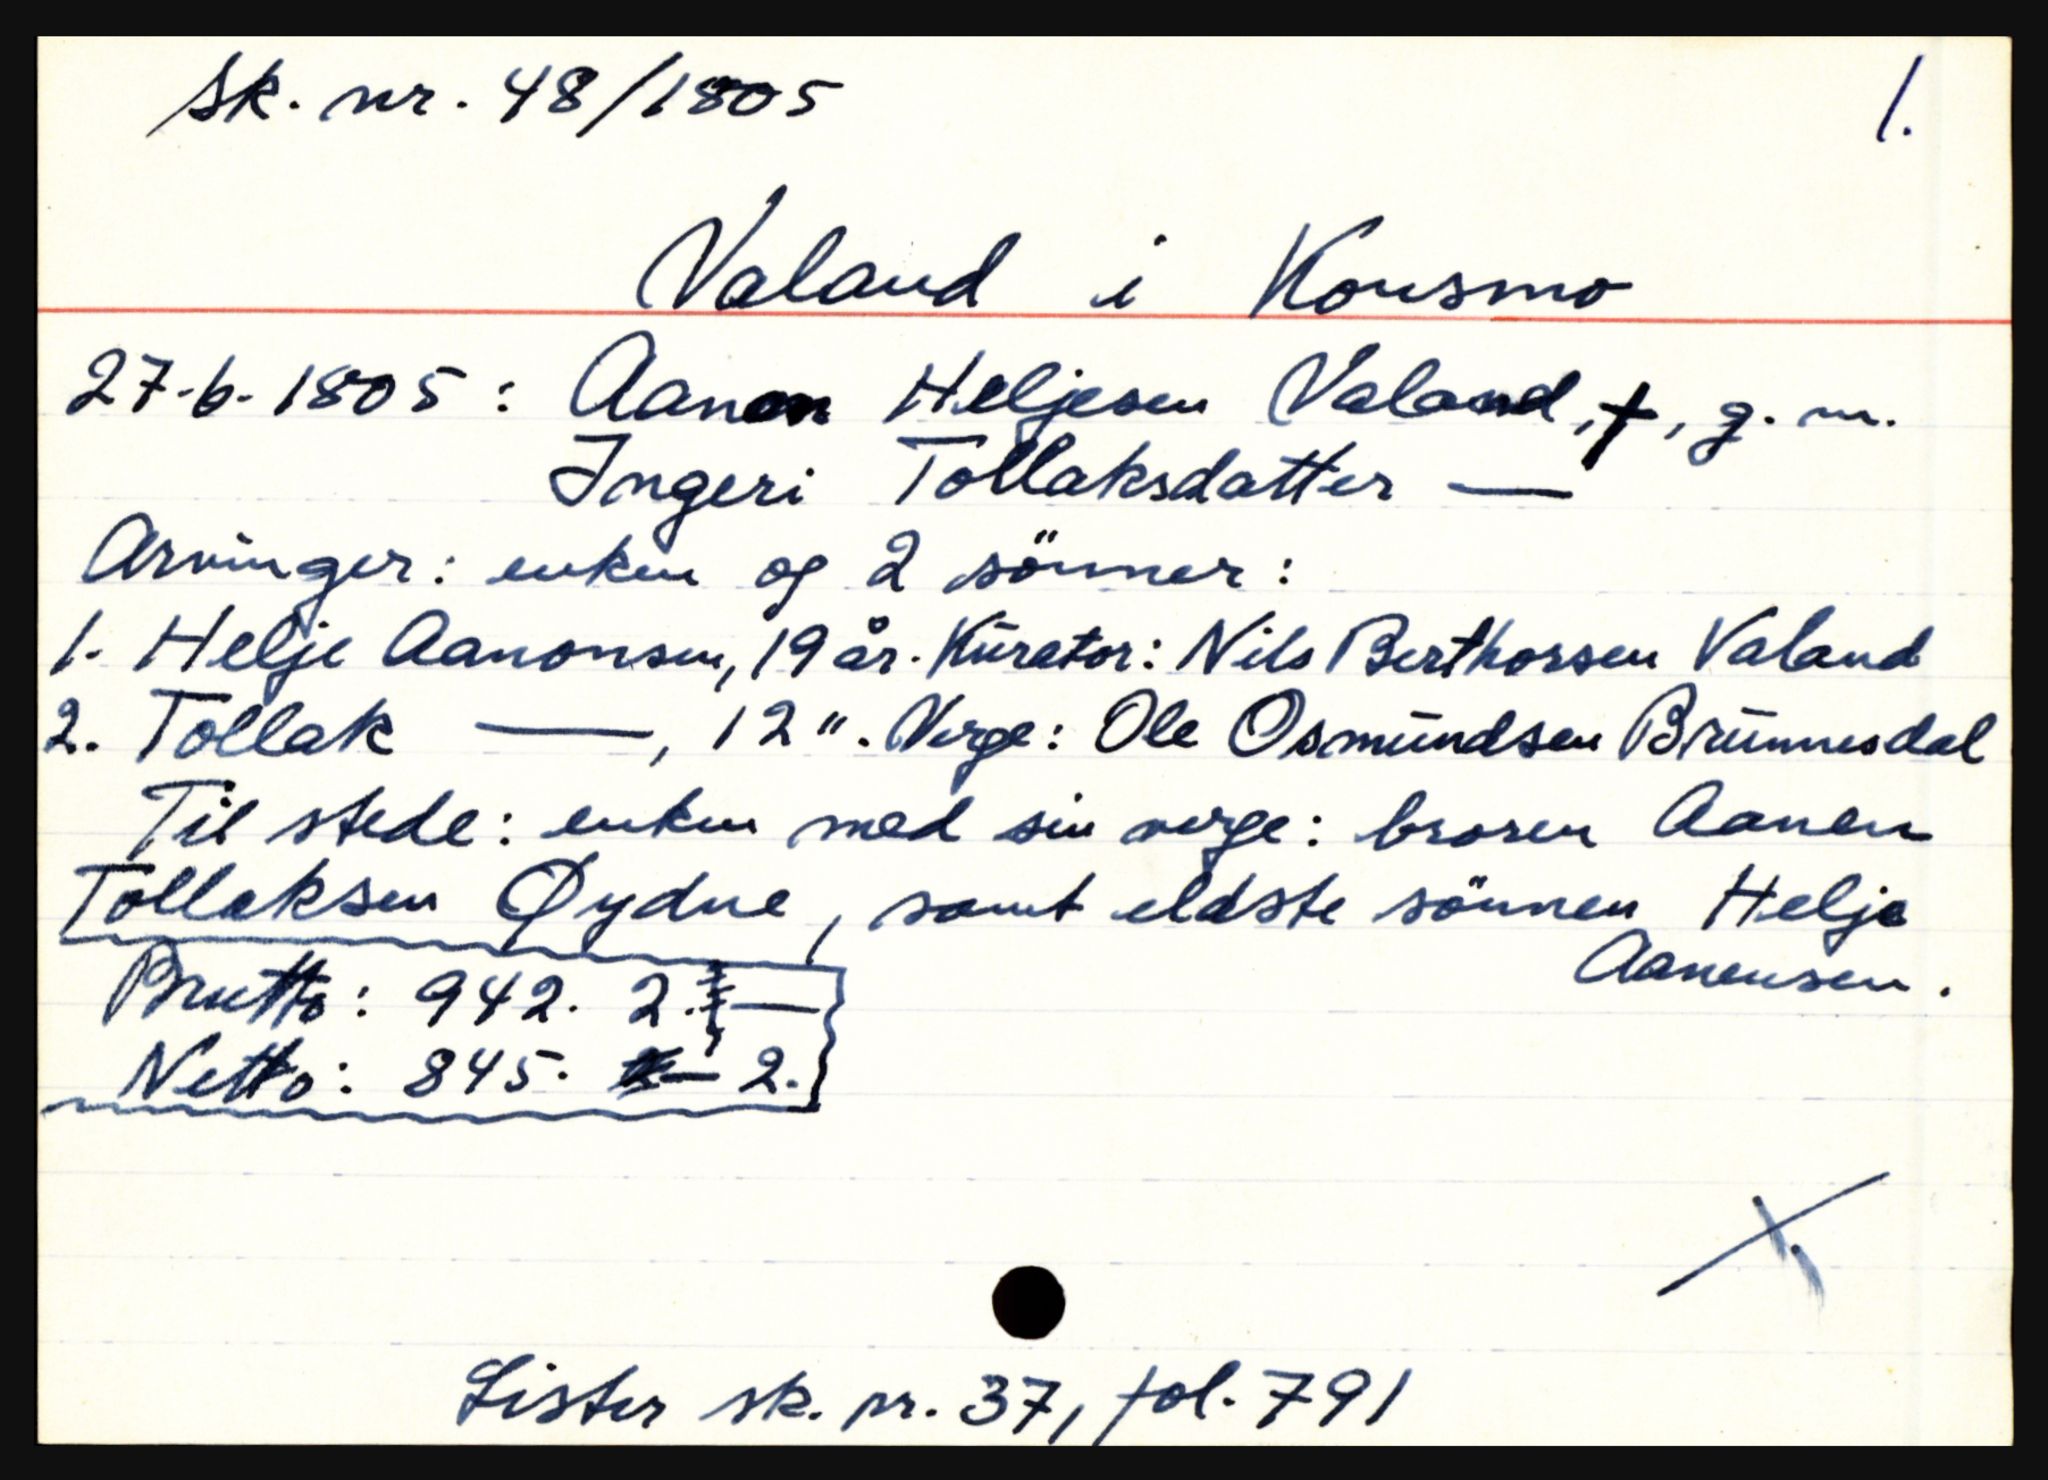 Sk. nr. 48/1805
1.
Valand i Konsmo
27-6-1805: Aanon Heljesen Valand, †, g. m.
Ingeri Tollaksdatter —
Arvinger: enken og 2 sönner:
1. Helje Aanonsen, 19 år. Kurator: Nils Berthorsen Valand
2. Tollak —, 12 ". Verge: Ole Osmundsen Brunnesdal
Til stede: enken med sin verge: broren Aanen
Tollaksen Øydne, samt eldste sönnen Helje
Aanensen.
Brutto: 942. 2. —
Netto: 845. — 2.
Lister sk. nr. 37, fol. 791